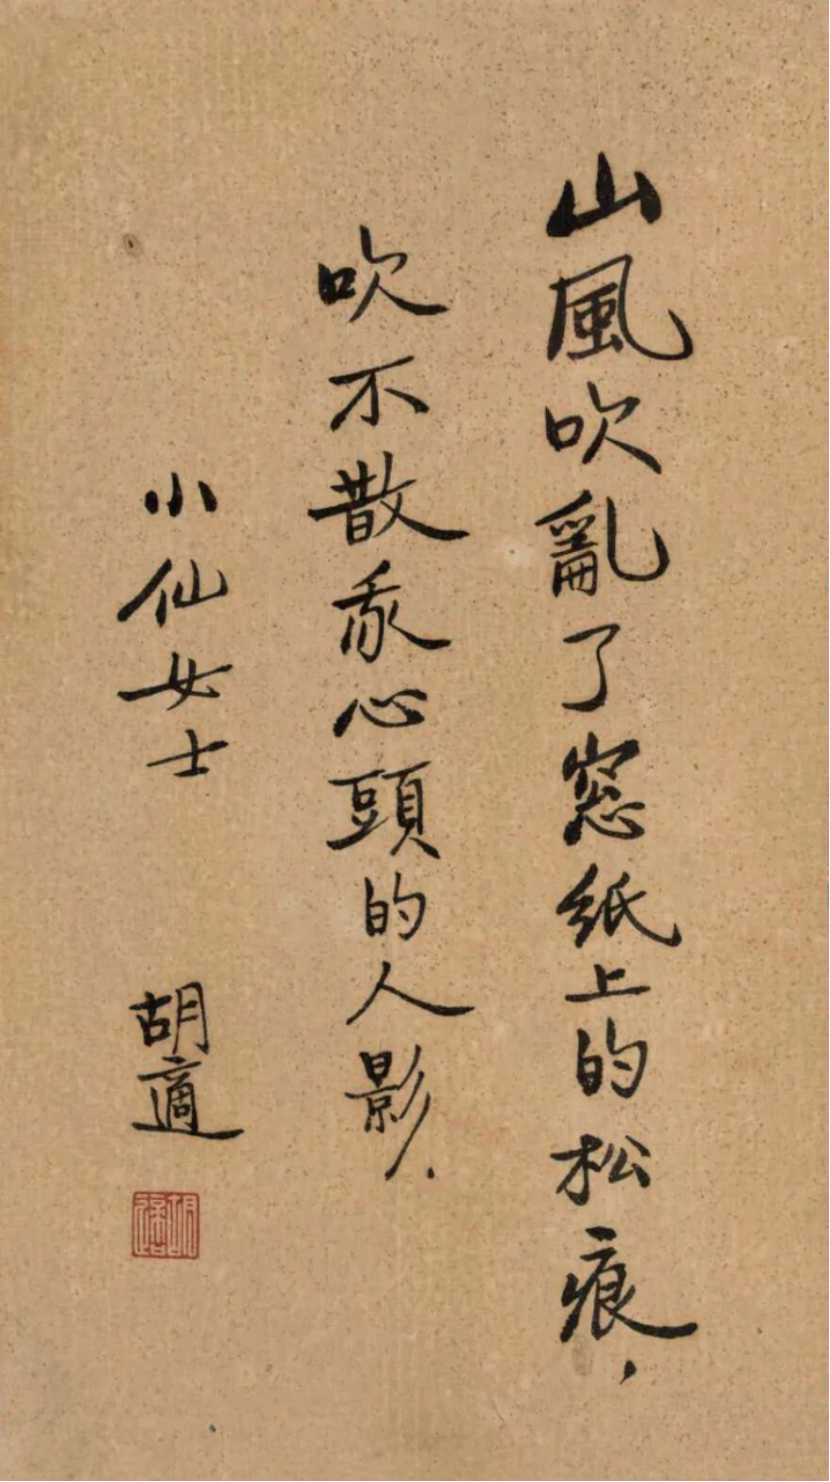 山風吹亂了窓紙上的松痕，
吹不散我心頭的人影．
小仙女士
胡適
胡適